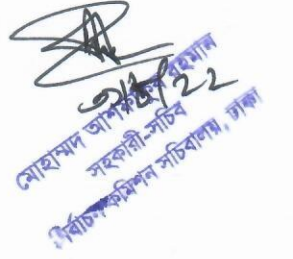 মোহাম্মদ আশফাকুর রহমান
সহকারী-সচিব
নির্বাচন কমিশন সচিবালয়, ঢাকা